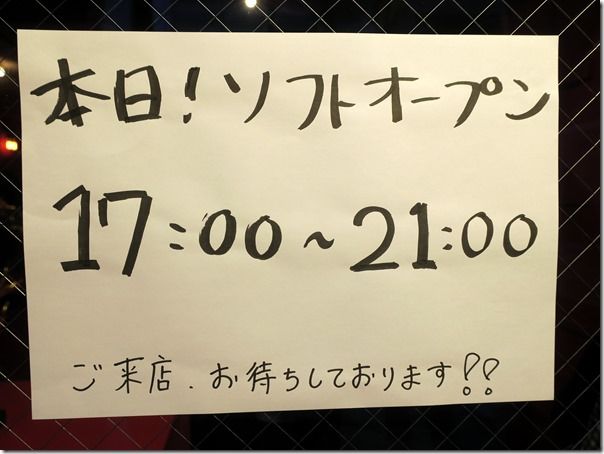 本日!ソフトオープン
17:00~21:00
ご来店.お待ちしております!!